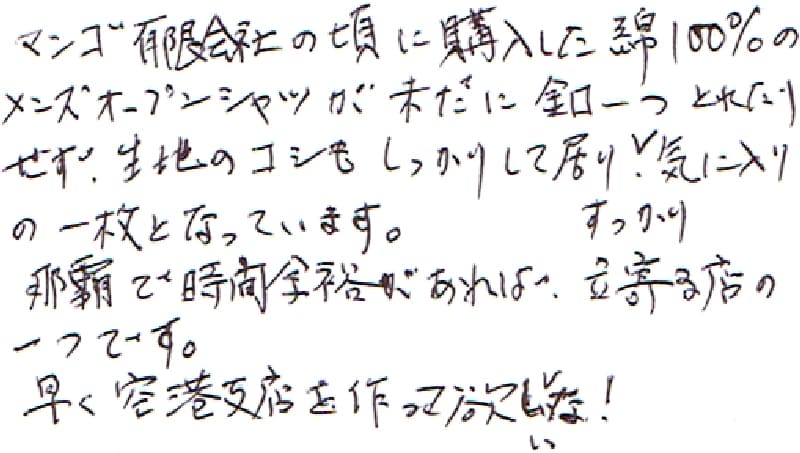 マンゴ有限会社の頃に購入した綿100%の
メンズオープンシャツが未だに釦一つとれたり
せず、生地のコシもしっかりして居り、気に入り
の一枚となっています。
すっかり
那覇で時間余裕があれば、立寄る店の
一つです。
早く空港支店を作って欲しいな!
い